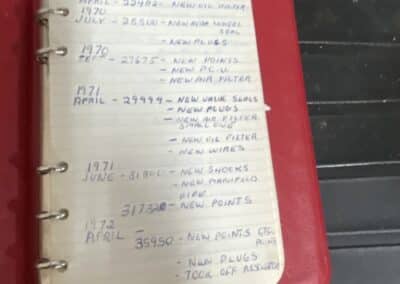 APRIL - 22482 - NEW OIL FILTER
1970
JULY - 25500 - NEW REAR WHEEL
SEAL
- NEW PLUGS
1970
- 27675 - NEW POINTS
- NEW P.C.V.
- NEW AIR FILTER
1971
APRIL - 29999 - NEW VALVE SEALS
- NEW PLUGS
- NEW AIR FILTER
SMALL ONE
- NEW OIL FILTER
- NEW WIRES
1971
JUNE - - NEW SHOCKS
- NEW MANIFOLD
PIPE
- NEW POINTS
1972
APRIL -
35950 - NEW POINTS
- NEW PLUGS
- TOOK OFF